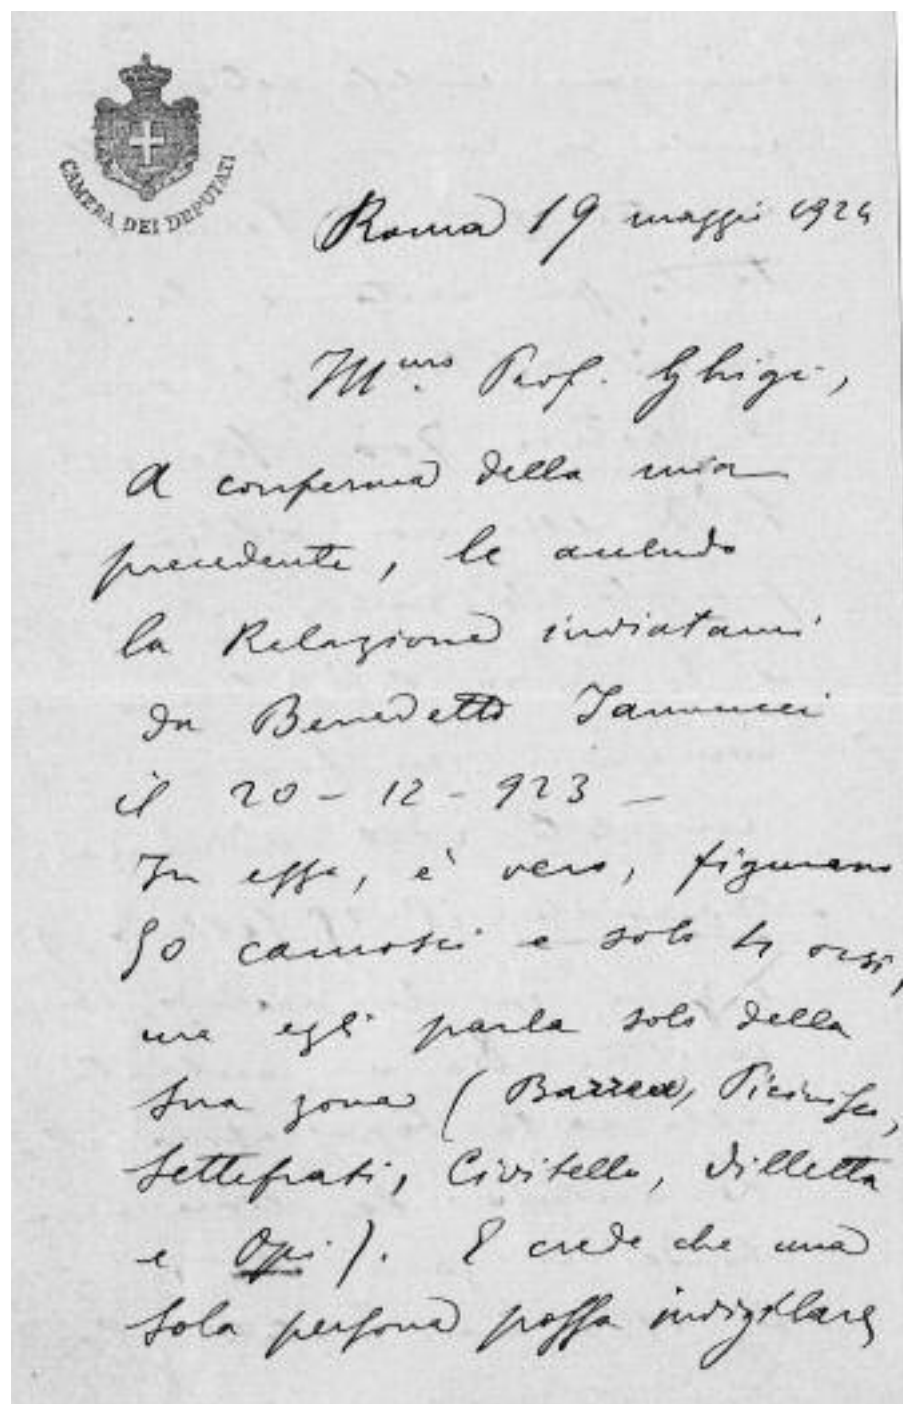 CAMERA DEI DEPUTATI
Roma 19 maggio 1924
Prof. Ghigi,
A conferma della mia
precedente, le accludo
la Relazione inviatami
da Benedetto Iannucci
il 20-12-923 —
In essa, è vero, figurano
50 camosci e solo 4 orsi,
ma egli parla solo della
sua zona (Barrea, Picinisco,
Settefrati, Civitella, Villetta
e Opi). E crede che una
sola persona possa invigilare